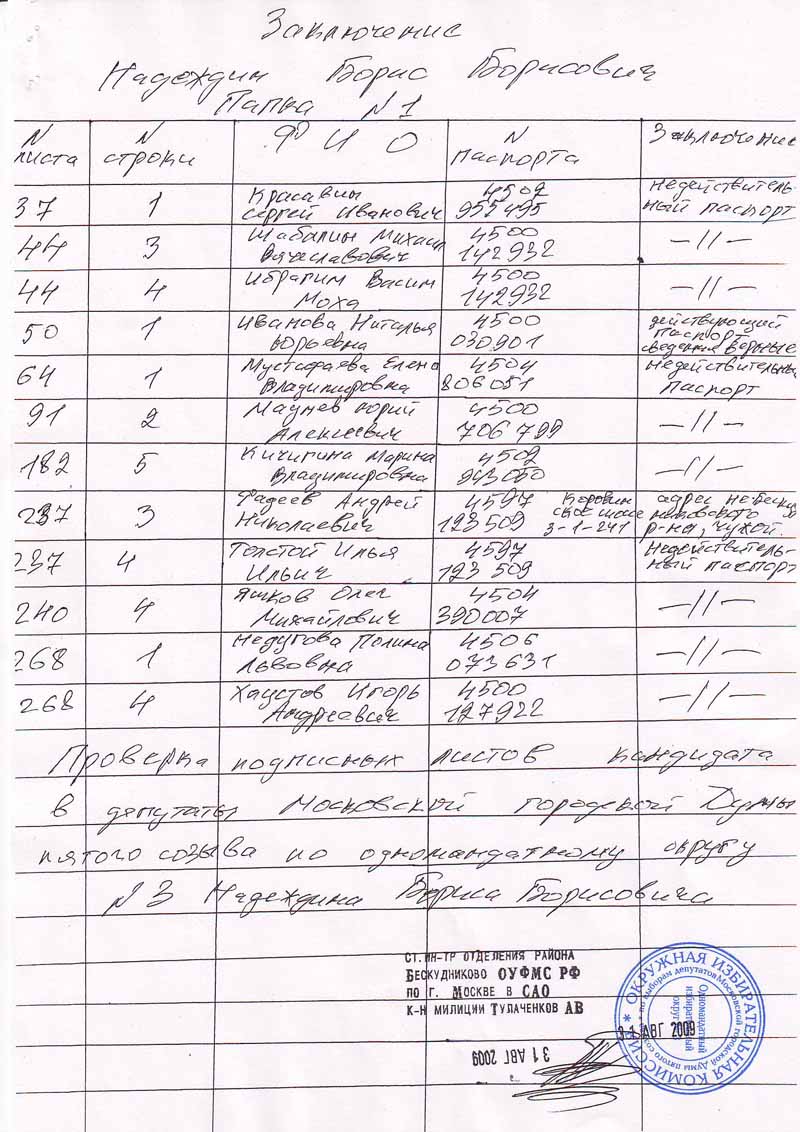 Заключение
Надеждин Борис Борисович
Папка N 1
N листа N строки Ф И О N паспорта Заключение
37 1 Красавин Сергей Иванович 4509 955495 недействительный паспорт
44 3 Шабалин Михаил Вячеславович 4500 142932 —//—
44 4 Ибрагим Васим Моха 4500 142932 —//—
50 1 Иванова Наталья Юрьевна 4500 030901 действующий паспорт сведения верные
64 1 Мустафаева Елена Владимировна 4504 806051 недействительный паспорт
91 2 Юрий Алексеевич 4500 706799 —//—
182 5 Кичигина Марина Владимировна 4502 —//—
237 3 Фадеев Андрей Николаевич 4597 123509 3-1-241 адрес не Бескудниковского р-на, чужой.
237 4 Толстой Илья Ильич 4597 123 509 недействительный паспорт
240 4 Яшков Олег Михайлович 4504 390007 —//—
268 1 Недугова Полина Львовна 4506 073631 —//—
268 4 Хаустов Игорь Андреевич 4500 127922 —//—
Проверка подписных листов кандидата
в депутаты Московской городской Думы
пятого созыва по одномандатному округу
N 3 Надеждина Бориса Борисовича
СТ.ИН-ТР ОТДЕЛЕНИЯ РАЙОНА
БЕСКУДНИКОВО ОУФМС РФ
ПО Г. МОСКВЕ В САО
К-Н МИЛИЦИИ ТУЛАЧЕНКОВ АВ
31 АВГ 2009
31 АВГ 2009
ОКРУЖНАЯ ИЗБИРАТЕЛЬНАЯ КОМИССИЯ
по выборам депутатов Московской городской Думы пятого созыва
Одномандатный
избирательный
округ